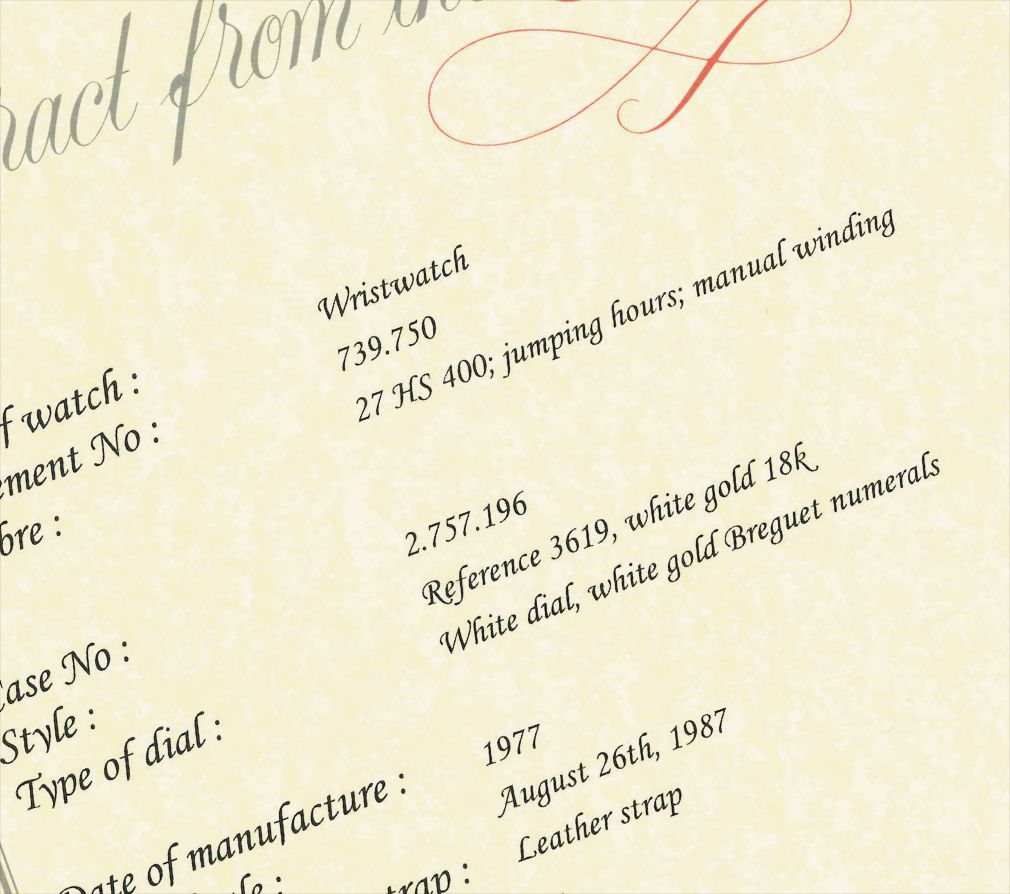 ract from the
f watch : Wristwatch
ement No : 739.750
bre : 27 HS 400; jumping hours; manual winding
Case No : 2.757.196
Style : Reference 3619, white gold 18k
Type of dial : White dial, white gold Breguet numerals
Date of manufacture : 1977
le : August 26th, 1987
trap : Leather strap